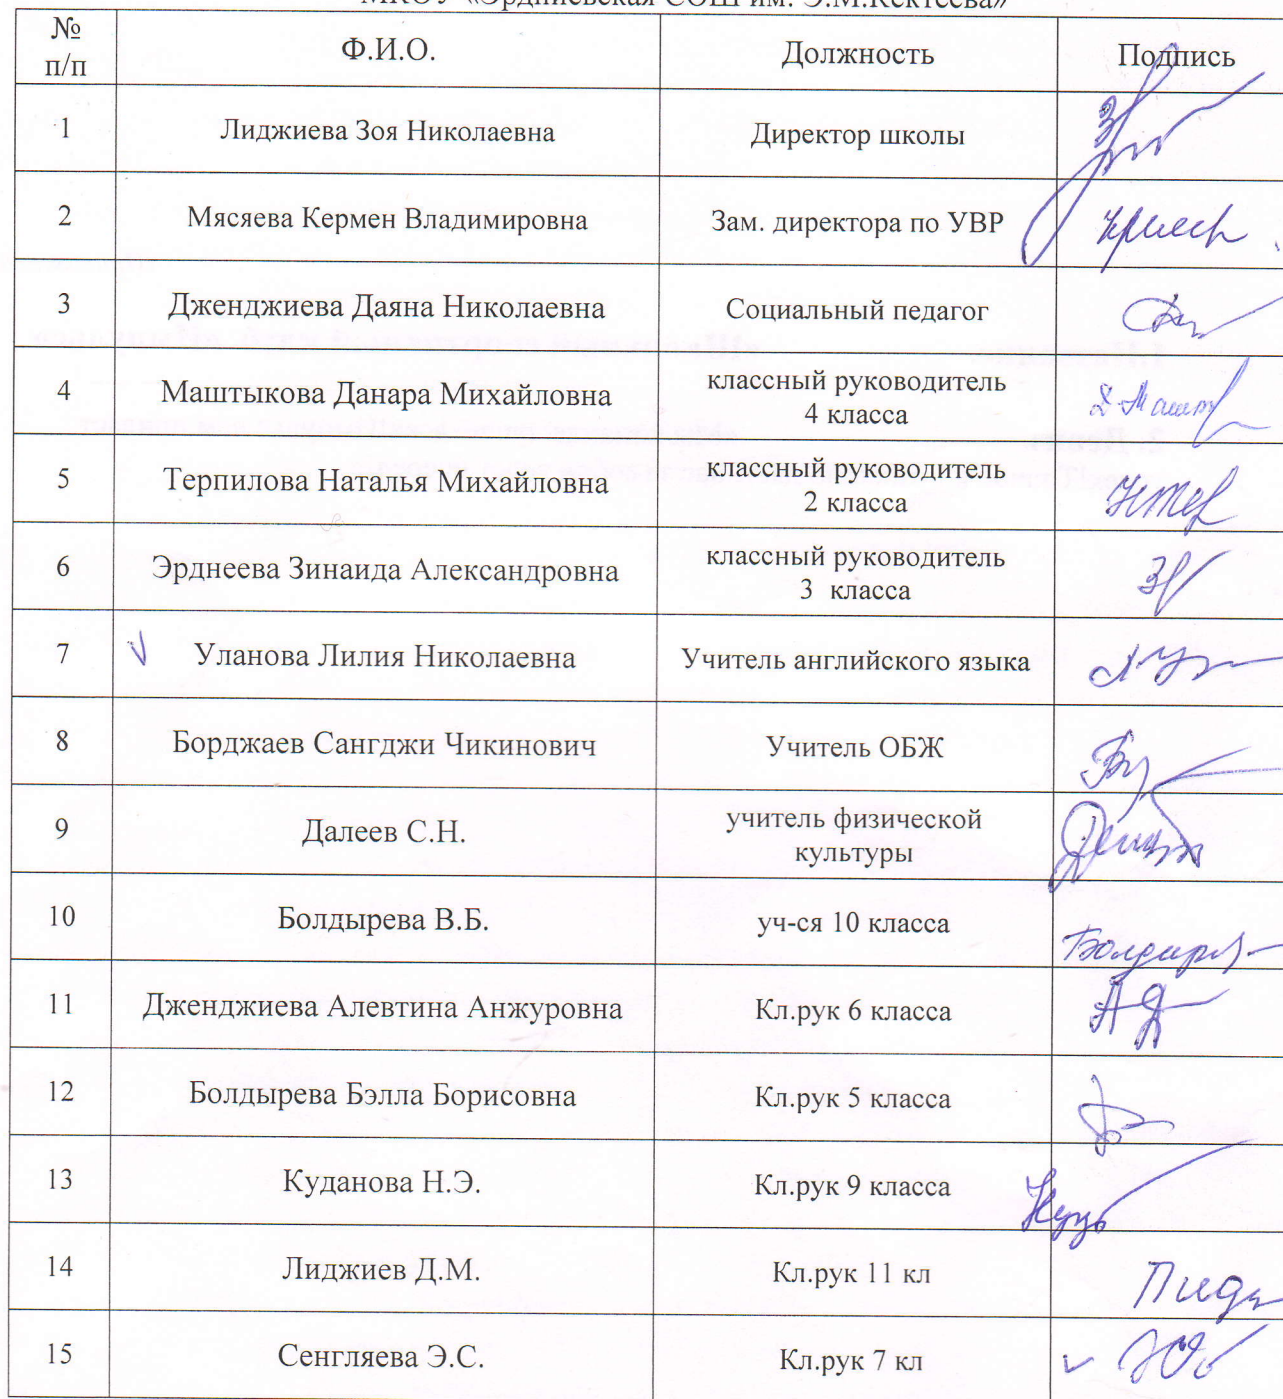 МКОУ «Эрдниевская СОШ им. Э.М.Кектеева»
№ п/п Ф.И.О. Должность Подпись
1 Лиджиева Зоя Николаевна Директор школы
2 Мясяева Кермен Владимировна Зам. директора по УВР
3 Дженджиева Даяна Николаевна Социальный педагог
4 Маштыкова Данара Михайловна классный руководитель
4 класса
5 Терпилова Наталья Михайловна классный руководитель
2 класса
6 Эрднеева Зинаида Александровна классный руководитель
3 класса
7 Уланова Лилия Николаевна Учитель английского языка
8 Борджаев Сангджи Чикинович Учитель ОБЖ
9 Далеев С.Н. учитель физической
культуры
10 Болдырева В.Б. уч-ся 10 класса
11 Дженджиева Алевтина Анжуровна Кл.рук 6 класса
12 Болдырева Бэлла Борисовна Кл.рук 5 класса
13 Куданова Н.Э. Кл.рук 9 класса
14 Лиджиев Д.М. Кл.рук 11 кл
15 Сенгляева Э.С. Кл.рук 7 кл